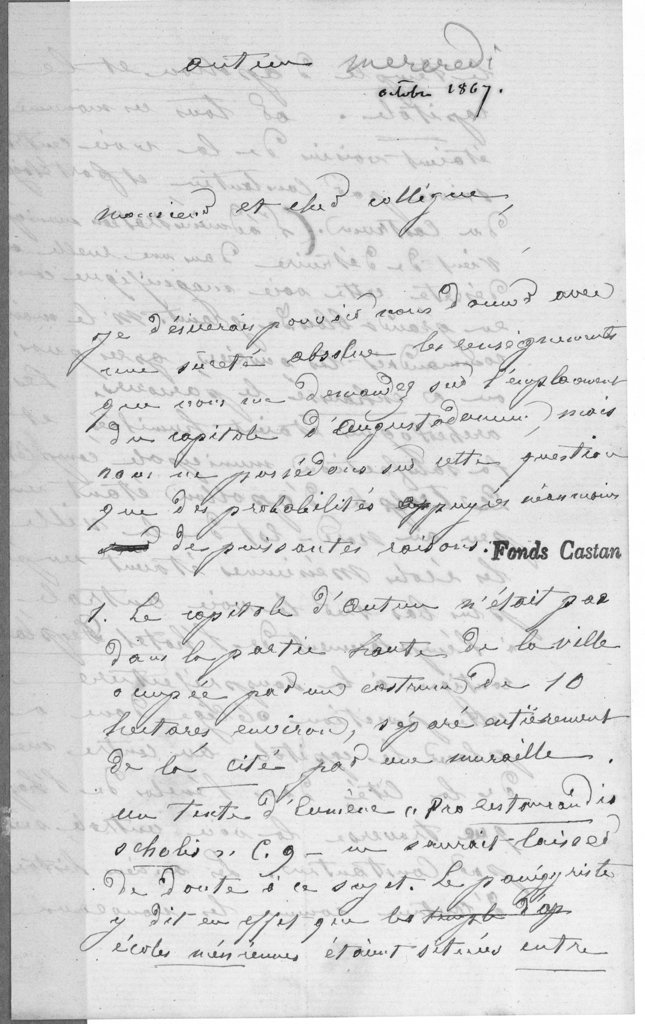 autun mercredi
octobre 1867.
monsieur et cher collégue,
je désirerais pouvoir vous donner avec
une sûreté absolue les renseignements
que vous me demandez sur l'emplacement
du capitole d'augustodunum, mais
nous ne possédons sur cette question
que des probabilités appuyées néanmoins
de puissantes raisons.
Fonds Castan
1. Le capitole d'autun n'était pas
dans la partie haute de la ville
occupée par un castrum de 10
hectares environ, séparé entièrement
de la cité par une muraille.
un texte d'Eumène "Pro restaurandis
scholis", C. 9 - ne saurait laisser
de doute à ce sujet. Le panégyriste
y dit en effet que les temple d'ap
écoles méniennes étaient situées entre